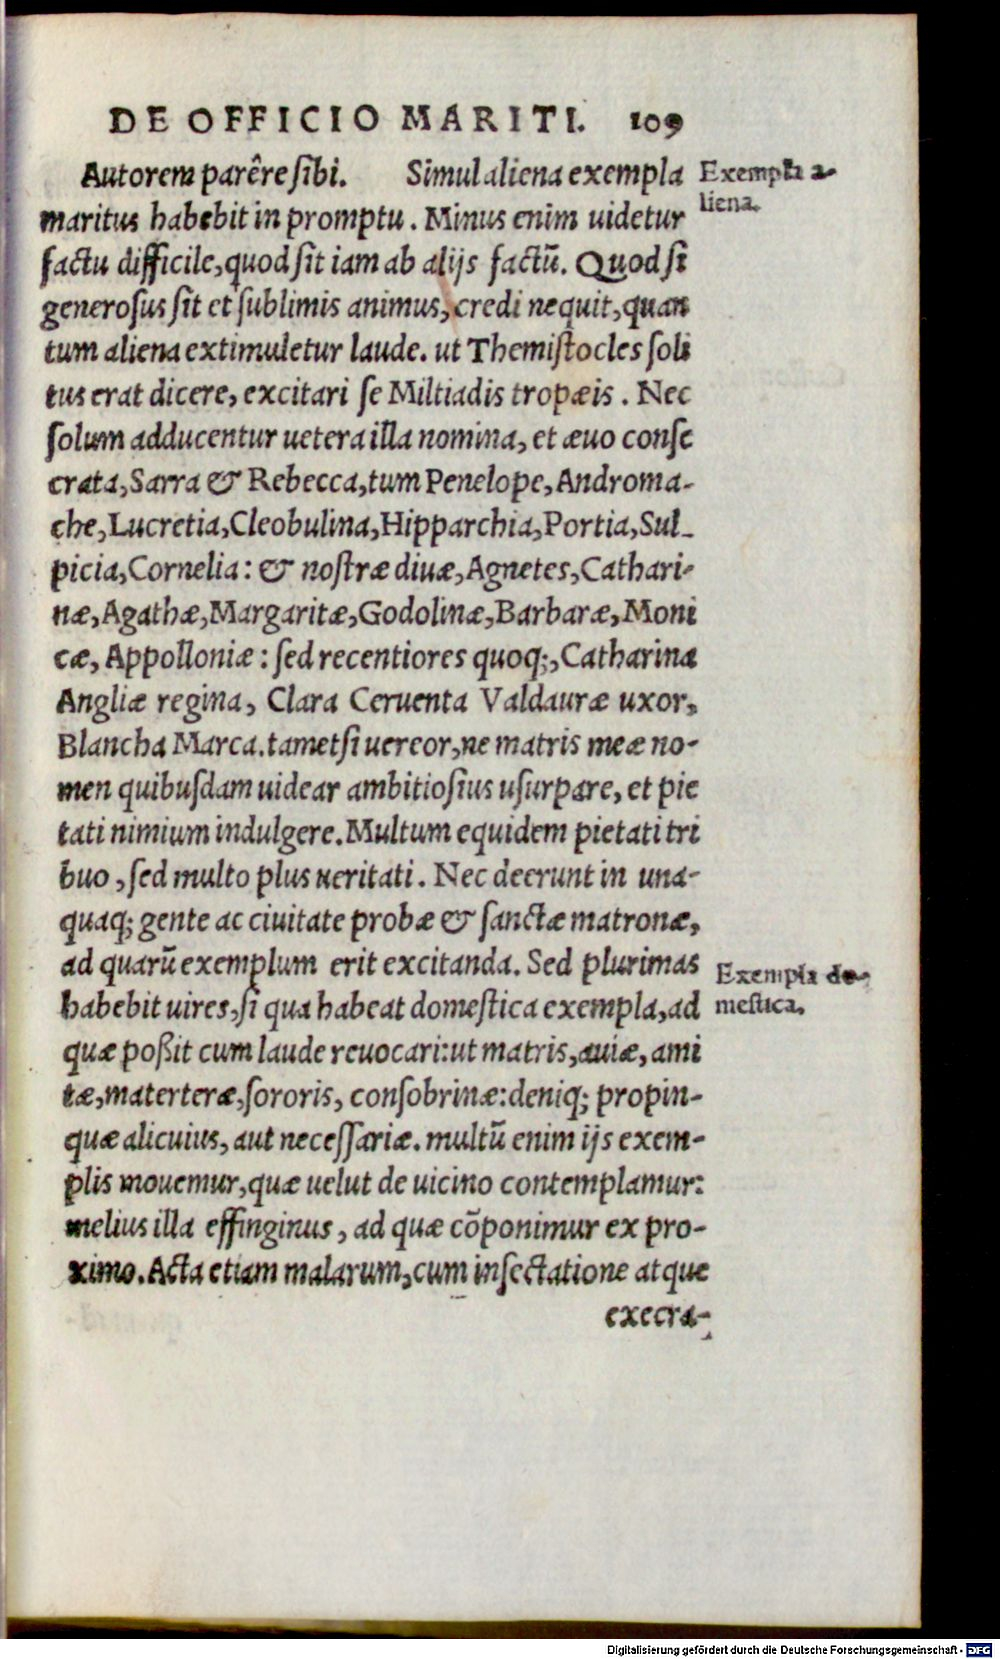 DE OFFICIO MARITI. 109
Autorem parêre sibi. Simul aliena exempla
Exempla a-
liena.
maritus habebit in promptu. Minus enim uidetur
factu difficile, quod sit iam ab alijs factũ. Quod si
generosus sit et sublimis animus, credi nequit, quan
tum aliena extimuletur laude. ut Themistocles soli
tus erat dicere, excitari se Miltiadis tropæis. Nec
solum adducentur uetera illa nomina, et æuo conse
crata, Sarra & Rebecca, tum Penelope, Androma-
che, Lucretia, Cleobulina, Hipparchia, Portia, Sul-
picia, Cornelia: & nostræ diuæ, Agnetes, Cathari-
næ, Agathæ, Margaritæ, Godolinæ, Barbaræ, Moni
cæ, Appolloniæ: sed recentiores quoq;, Catharina
Angliæ regina, Clara Ceruenta Valdauræ uxor,
Blancha Marca. tametsi uereor, ne matris meæ no-
men quibusdam uidear ambitiosius usurpare, et pie
tati nimium indulgere. Multum equidem pietati tri
buo, sed multo plus ueritati. Nec deerunt in una-
quaq; gente ac ciuitate probæ & sanctæ matronæ,
ad quarũ exemplum erit excitanda. Sed plurimas
Exempla do-
mestica.
habebit uires, si qua habeat domestica exempla, ad
quæ poßit cum laude reuocari: ut matris, auiæ, ami
tæ, materteræ, sororis, consobrinæ: deniq; propin-
quæ alicuius, aut necessariæ. multũ enim ijs exem-
plis mouemur, quæ uelut de uicino contemplamur:
melius illa effinginus, ad quæ cõponimur ex pro-
ximo. Acta etiam malarum, cum insectatione atque
execra-
Digitalisierung gefördert durch die Deutsche Forschungsgemeinschaft - DFG